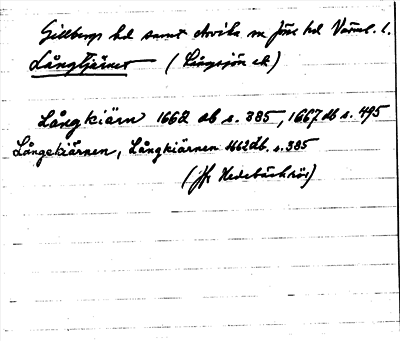 Gillbergs hd samt Arvika m fåre hd Värml. l.
Långtjärnet (Långsjön ek)
Långkiärn 1662 db s. 385, 1667 db s. 495
Långekiärnen, Långkiärnen 1662 db. s. 385
(jfr Hedebäcksrös)